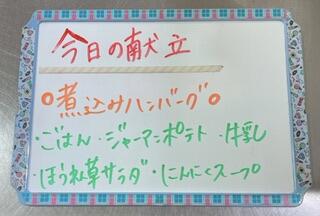 今日の献立
○煮込みハンバーグ○
・ごはん・ジャーマンポテト・牛乳
・ほうれん草サラダ・にんにくスープ